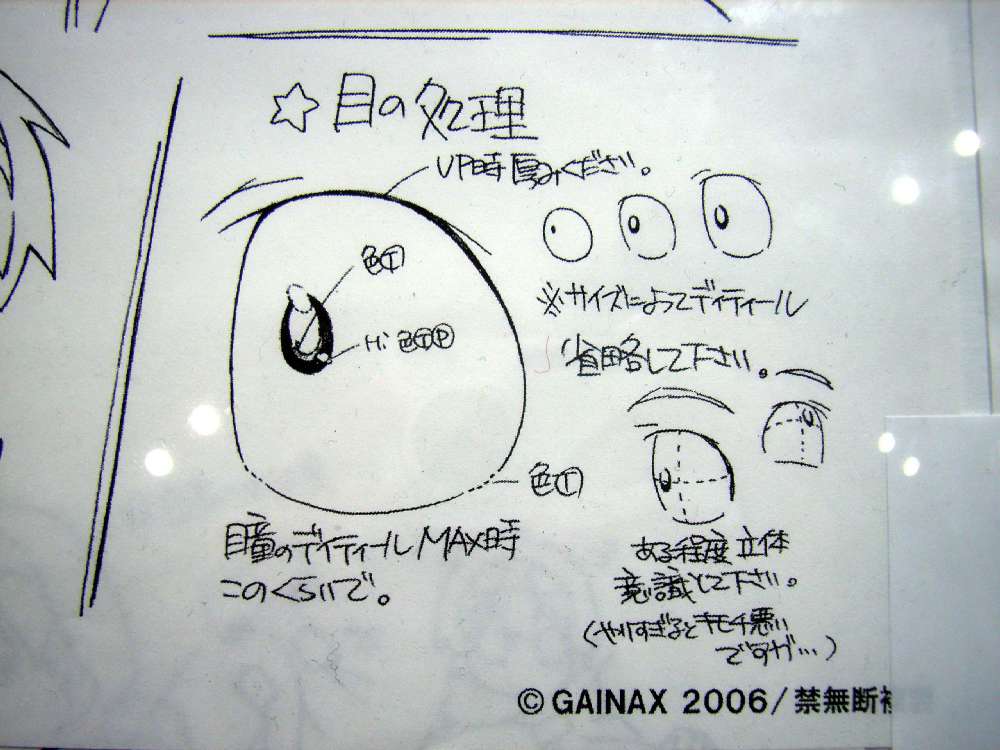 ☆目の処理
UP時厚みください。
色Ⓣ
Hi 色ⓉⓅ
※サイズによってディティール
省略して下さい。
色Ⓣ
瞳のディティールMAX時
このくらいで。
ある程度立体
意識して下さい。
(やりすぎるとキモチ悪い
ですが…)
© GAINAX 2006/禁無断複